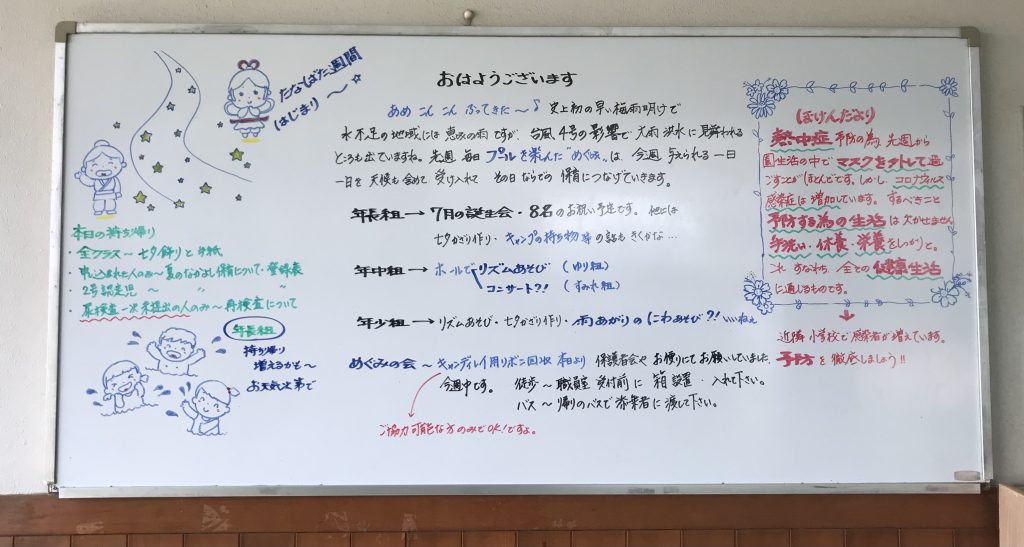 たなばた週間
はじまり〜☆
おはようございます
あめ こん こん ふってきた〜♪ 史上初の早い梅雨明けで
水不足の地域には恵みの雨ですが、台風4号の影響で大雨洪水に見舞われる
ところも出ていますね。先週 毎日 プールを楽んだ"めぐみ"は 今週 与えられる一日
一日を 天候も含めて 受け入れて その日ならでの 保育につなげていきます。
年長組→7月の誕生会・8名のお祝い予定です。他には
七夕かざり作り・キャンプの持ち物等の話もきくかな…
年中組→ホールでリズムあそび (ゆり組)
コンサート?! (すみれ組)
年少組→リズムあそび・七夕かざり作り・雨あがりのにわあそび?! いいねぇ
めぐみの会〜キャンディレイ用リボン回収 本日より 保護者会や お便りにてお願いしていました
今週中です。 徒歩〜職員室 受付前に 箱設置・入れて下さい。
バス〜帰りのバスで添乗者に渡して下さい。
ご協力可能な方のみでOK!ですよ。
本日の持ち帰り
・全クラス〜七夕飾りと手紙
・申込まれた人のみ〜夏のなかよし保育について・登録表
・2号認定児 〜 〃 〃
・尿検査一次未提出の人のみ〜再検査について
年長組
持ち帰り
増えるかも〜
お天気次第で
ほけんだより
熱中症 予防の為、先週から
園生活の中で マスクを外して過
ごすことがほとんどです。しかし、コロナウィルス
感染症は増加しています。するべきこと
予防する為の生活は欠かせません
手洗い・休養・栄養をしっかりと。
これ すなわち、全ての健康生活
に通じるものです。
↓
近隣 小学校で感染者が増えています。
予防を徹底しましょう!!